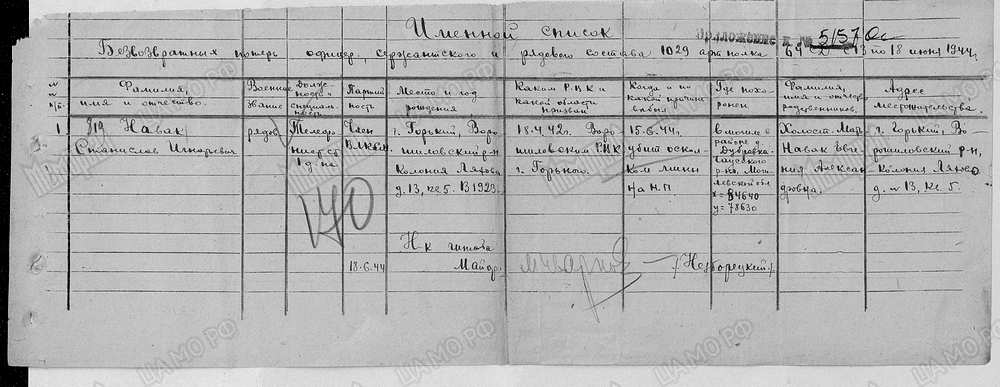 Именной список
Приложение к № 5157 0с
Безвозвратных потерь офицер, сержантского и рядового состава 1029 арт полка 69 СД с 13 по 18 июня 1944 г.
№ п/п.
Фамилия, имя и отчество.
Военное звание
Долж-
ность и
специаль-
ность
Партий
ность
Место и год
рождения
Каким РВК и
какой области
призван
Когда и по
какой причине
выбыл
Где похо-
ронен
Фамилия,
имя и отчество
родственников.
Адрес
местожительства.
1
919 Навак
Станислав Игнарович
рядов.
Телефо-
нист ст.
1 д-на
Член
ВЛКСМ
г. Горький, Воро
шиловский р-н
Колония Ляхово
д. 13, кв. 5. В 1923 г.
18.4.42г. Воро
шиловским РВК
г. Горького.
15.6.44г.
убит оскол-
ком мины
на НП
в могиле в
районе д.
Дубровка
Чаусского
р-на, Мог-
левской обл
х = 84640
у = 78630
Холост. Мать
Навак Евге-
ния Алексан
дровна,
г. Горький, Во
рошиловский р-н,
Колония Ляхово
д. № 13, кв. 5.
140
Н-к штаба
18.6.44
Майор
/Незборецкий/
ЦАМО РФ